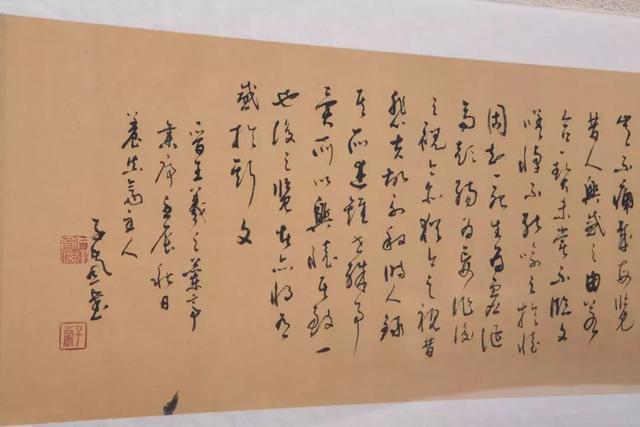 豈不痛哉每覽
昔人興感之由若
合一契未嘗不臨文
嗟悼不能喻之於懷
固知一死生為虛誕
齊彭殤為妄作後
之視今亦猶今之視昔
悲夫故列敘時人錄
其所述雖世殊事
異所以興懷其致一
也後之覽者亦將有
感於斯文
晉王羲之蘭亭
集序壬辰秋日
養真齋主人
子